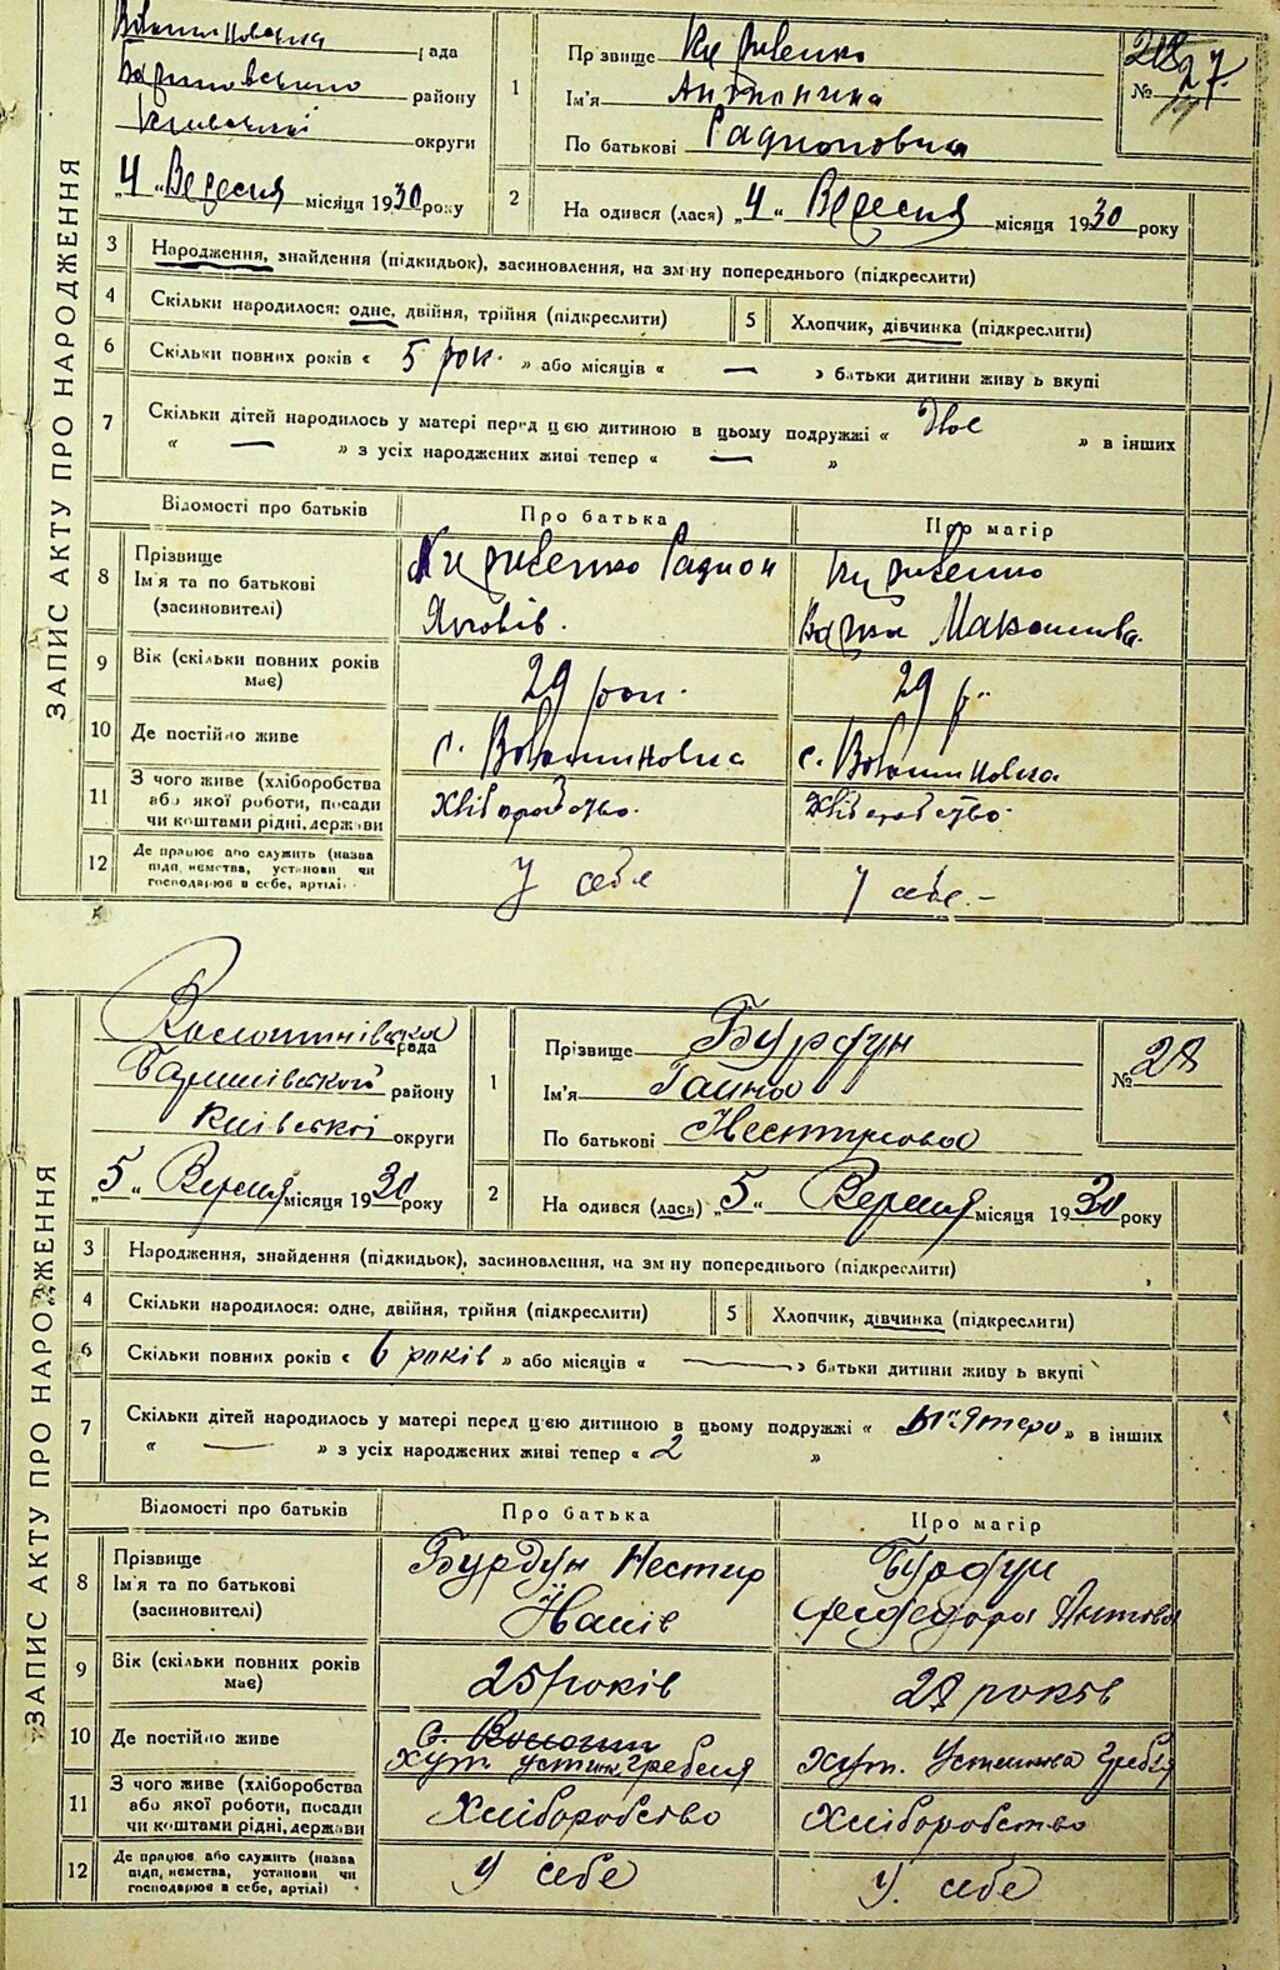 ЗАПИС АКТУ ПРО НАРОДЖЕННЯ
рада
району
округи
„4“ Вересня місяця 1930 року
1
Прізвище
Ім'я Антонина
По батькові Радионовна
№ 27
2 На одився (лася) „4“ Вересня місяця 1930 року
3 Народження, знайдення (підкидьок), засиновлення, на зм ну попереднього (підкреслити)
4 Скільки народилося: одне, двійня, трійня (підкреслити)
5 Хлопчик, дівчинка (підкреслити)
6 Скільки повних років « 5 рок. » або місяців « — » батьки дитини живу ь вкупі
7 Скільки дітей народилось у матері перед цєю дитиною в цьому подружжі « Двое » в інших
« — » з усіх народжених живі тепер « — »
Відомості про батьків
Про батька
Про матір
8 Прізвище
Ім'я та по батькові
(засиновителі)
Радион
Яковів.
Максимова
9 Вік (скільки повних років має)
29 рок.
29 р.
10 Де постійно живе
с. Волошиновка
с. Волошиновка
11 З чого живе (хліборобства
або якої роботи, посади
чи коштами рідні, держави
Хліборобство.
Хліборобство.
12 Де працює або служить (назва
підп, иємства, установи чи
господарює в себе, артілі)
У себе
У себе.-
ЗАПИС АКТУ ПРО НАРОДЖЕННЯ
Волошинівська рада
Баришівського району
Київської округи
„5“ Вересня місяця 1930 року
1
Прізвище Бурдун
Ім'я Ганна
По батькові Нестирова
№ 28
2 На одився (лася) „5“ Вересня місяця 1930 року
3 Народження, знайдення (підкидьок), засиновлення, на зм ну попереднього (підкреслити)
4 Скільки народилося: одне, двійня, трійня (підкреслити)
5 Хлопчик, дівчинка (підкреслити)
6 Скільки повних років « 6 років » або місяців « — » батьки дитини живу ь вкупі
7 Скільки дітей народилось у матері перед цєю дитиною в цьому подружжі « п'ятеро » в інших
« — » з усіх народжених живі тепер « 2 »
Відомості про батьків
Про батька
Про матір
8 Прізвище
Ім'я та по батькові
(засиновителі)
Бурдун Нестир
Бурдун
9 Вік (скільки повних років має)
25 років
28 років
10 Де постійно живе
хут. Устин. Гребля
хут. Устинова Гребля
11 З чого живе (хліборобства
або якої роботи, посади
чи коштами рідні, держави
Хліборобство
Хліборобство
12 Де працює або служить (назва
підп, иємства, установи чи
господарює в себе, артілі)
У себе
У. себе